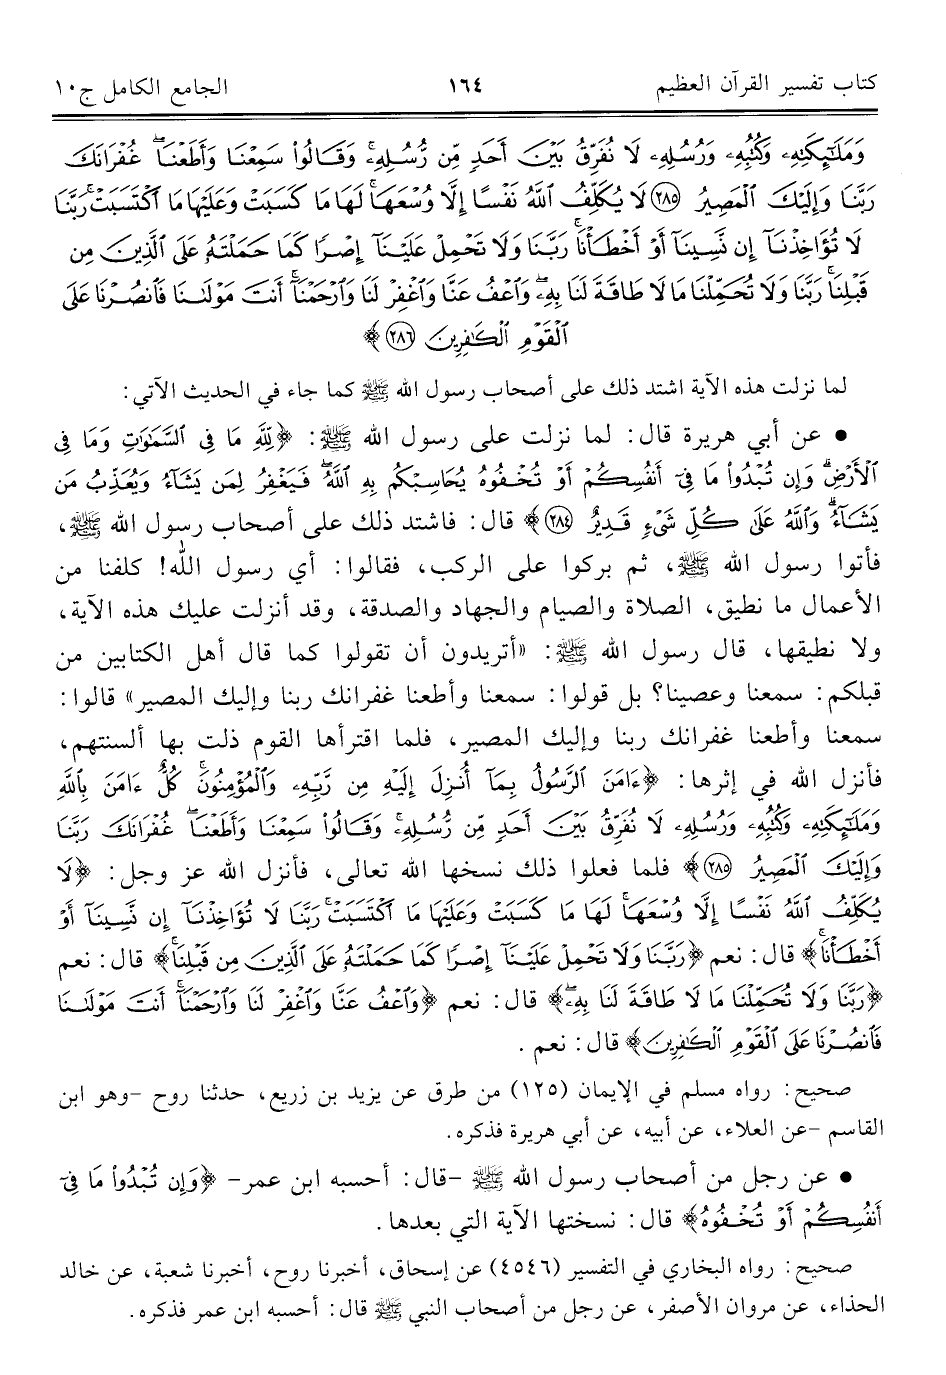 كتاب تفسير القرآن العظيم ١٦٤ الجامع الكامل ج١٠
وَمَلَٰٓئِكَتِهِۦ وَكُتُبِهِۦ وَرُسُلِهِۦ لَا نُفَرِّقُ بَيۡنَ أَحَدٖ مِّن رُّسُلِهِۦۚ وَقَالُواْ سَمِعۡنَا وَأَطَعۡنَاۖ غُفۡرَانَكَ
رَبَّنَا وَإِلَيۡكَ ٱلۡمَصِيرُ ٢٨٥ لَا يُكَلِّفُ ٱللَّهُ نَفۡسًا إِلَّا وُسۡعَهَاۚ لَهَا مَا كَسَبَتۡ وَعَلَيۡهَا مَا ٱكۡتَسَبَتۡۗ رَبَّنَا
لَا تُؤَاخِذۡنَآ إِن نَّسِينَآ أَوۡ أَخۡطَأۡنَاۚ رَبَّنَا وَلَا تَحۡمِلۡ عَلَيۡنَآ إِصۡرٗا كَمَا حَمَلۡتَهُۥ عَلَى ٱلَّذِينَ مِن
قَبۡلِنَاۚ رَبَّنَا وَلَا تُحَمِّلۡنَا مَا لَا طَاقَةَ لَنَا بِهِۦۖ وَٱعۡفُ عَنَّا وَٱغۡفِرۡ لَنَا وَٱرۡحَمۡنَآۚ أَنتَ مَوۡلَىٰنَا فَٱنصُرۡنَا عَلَى
ٱلۡقَوۡمِ ٱلۡكَٰفِرِينَ ٢٨٦﴾
لما نزلت هذه الآية اشتد ذلك على أصحاب رسول الله ﷺ كما جاء في الحديث الآتي:
• عن أبي هريرة قال: لما نزلت على رسول الله ﷺ: ﴿لِلَّهِ مَا فِي ٱلسَّمَٰوَٰتِ وَمَا فِي
ٱلۡأَرۡضِۗ وَإِن تُبۡدُواْ مَا فِيٓ أَنفُسِكُمۡ أَوۡ تُخۡفُوهُ يُحَاسِبۡكُم بِهِ ٱللَّهُۖ فَيَغۡفِرُ لِمَن يَشَآءُ وَيُعَذِّبُ مَن
يَشَآءُۗ وَٱللَّهُ عَلَىٰ كُلِّ شَيۡءٖ قَدِيرٌ ٢٨٤﴾ قال: فاشتد ذلك على أصحاب رسول الله ﷺ،
فأتوا رسول الله ﷺ، ثم بركوا على الركب، فقالوا: أي رسول الله! كلفنا من
الأعمال ما نطيق، الصلاة والصيام والجهاد والصدقة، وقد أنزلت عليك هذه الآية،
ولا نطيقها، قال رسول الله ﷺ: «أتريدون أن تقولوا كما قال أهل الكتابين من
قبلكم: سمعنا وعصينا؟ بل قولوا: سمعنا وأطعنا غفرانك ربنا وإليك المصير» قالوا:
سمعنا وأطعنا غفرانك ربنا وإليك المصير، فلما اقترأها القوم ذلت بها ألسنتهم،
فأنزل الله في إثرها: ﴿ءَامَنَ ٱلرَّسُولُ بِمَآ أُنزِلَ إِلَيۡهِ مِن رَّبِّهِۦ وَٱلۡمُؤۡمِنُونَۚ كُلٌّ ءَامَنَ بِٱللَّهِ
وَمَلَٰٓئِكَتِهِۦ وَكُتُبِهِۦ وَرُسُلِهِۦ لَا نُفَرِّقُ بَيۡنَ أَحَدٖ مِّن رُّسُلِهِۦۚ وَقَالُواْ سَمِعۡنَا وَأَطَعۡنَاۖ غُفۡرَانَكَ رَبَّنَا
وَإِلَيۡكَ ٱلۡمَصِيرُ ٢٨٥﴾ فلما فعلوا ذلك نسخها الله تعالى، فأنزل الله عز وجل: ﴿لَا
يُكَلِّفُ ٱللَّهُ نَفۡسًا إِلَّا وُسۡعَهَاۚ لَهَا مَا كَسَبَتۡ وَعَلَيۡهَا مَا ٱكۡتَسَبَتۡۗ رَبَّنَا لَا تُؤَاخِذۡنَآ إِن نَّسِينَآ أَوۡ
أَخۡطَأۡنَاۚ﴾ قال: نعم ﴿رَبَّنَا وَلَا تَحۡمِلۡ عَلَيۡنَآ إِصۡرٗا كَمَا حَمَلۡتَهُۥ عَلَى ٱلَّذِينَ مِن قَبۡلِنَاۚ﴾ قال: نعم
﴿رَبَّنَا وَلَا تُحَمِّلۡنَا مَا لَا طَاقَةَ لَنَا بِهِۦۖ﴾ قال: نعم ﴿وَٱعۡفُ عَنَّا وَٱغۡفِرۡ لَنَا وَٱرۡحَمۡنَآۚ أَنتَ مَوۡلَىٰنَا
فَٱنصُرۡنَا عَلَى ٱلۡقَوۡمِ ٱلۡكَٰفِرِينَ﴾ قال: نعم.
صحيح: رواه مسلم في الإيمان (١٢٥) من طرق عن يزيد بن زريع، حدثنا روح -وهو ابن
القاسم -عن العلاء، عن أبيه، عن أبي هريرة فذكره.
• عن رجل من أصحاب رسول الله ﷺ -قال: أحسبه ابن عمر- ﴿وَإِن تُبۡدُواْ مَا فِيٓ
أَنفُسِكُمۡ أَوۡ تُخۡفُوهُ﴾ قال: نسختها الآية التي بعدها.
صحيح: رواه البخاري في التفسير (٤٥٤٦) عن إسحاق، أخبرنا روح، أخبرنا شعبة، عن خالد
الحذاء، عن مروان الأصفر، عن رجل من أصحاب النبي ﷺ قال: أحسبه ابن عمر فذكره.